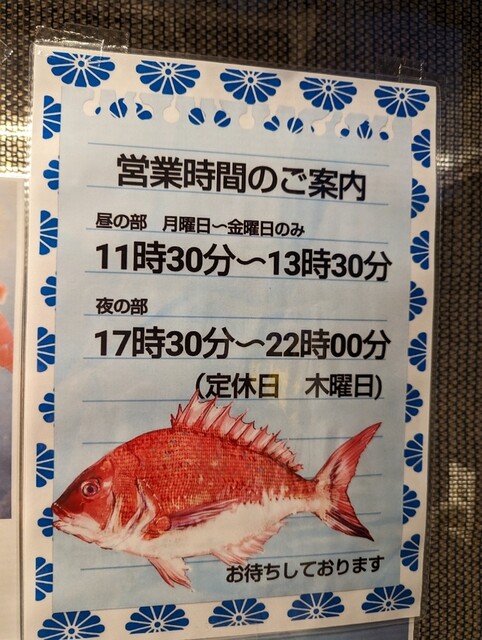 営業時間のご案内
昼の部　月曜日〜金曜日のみ
11時30分〜13時30分
夜の部
17時30分〜22時00分
（定休日　木曜日)
お待ちしております